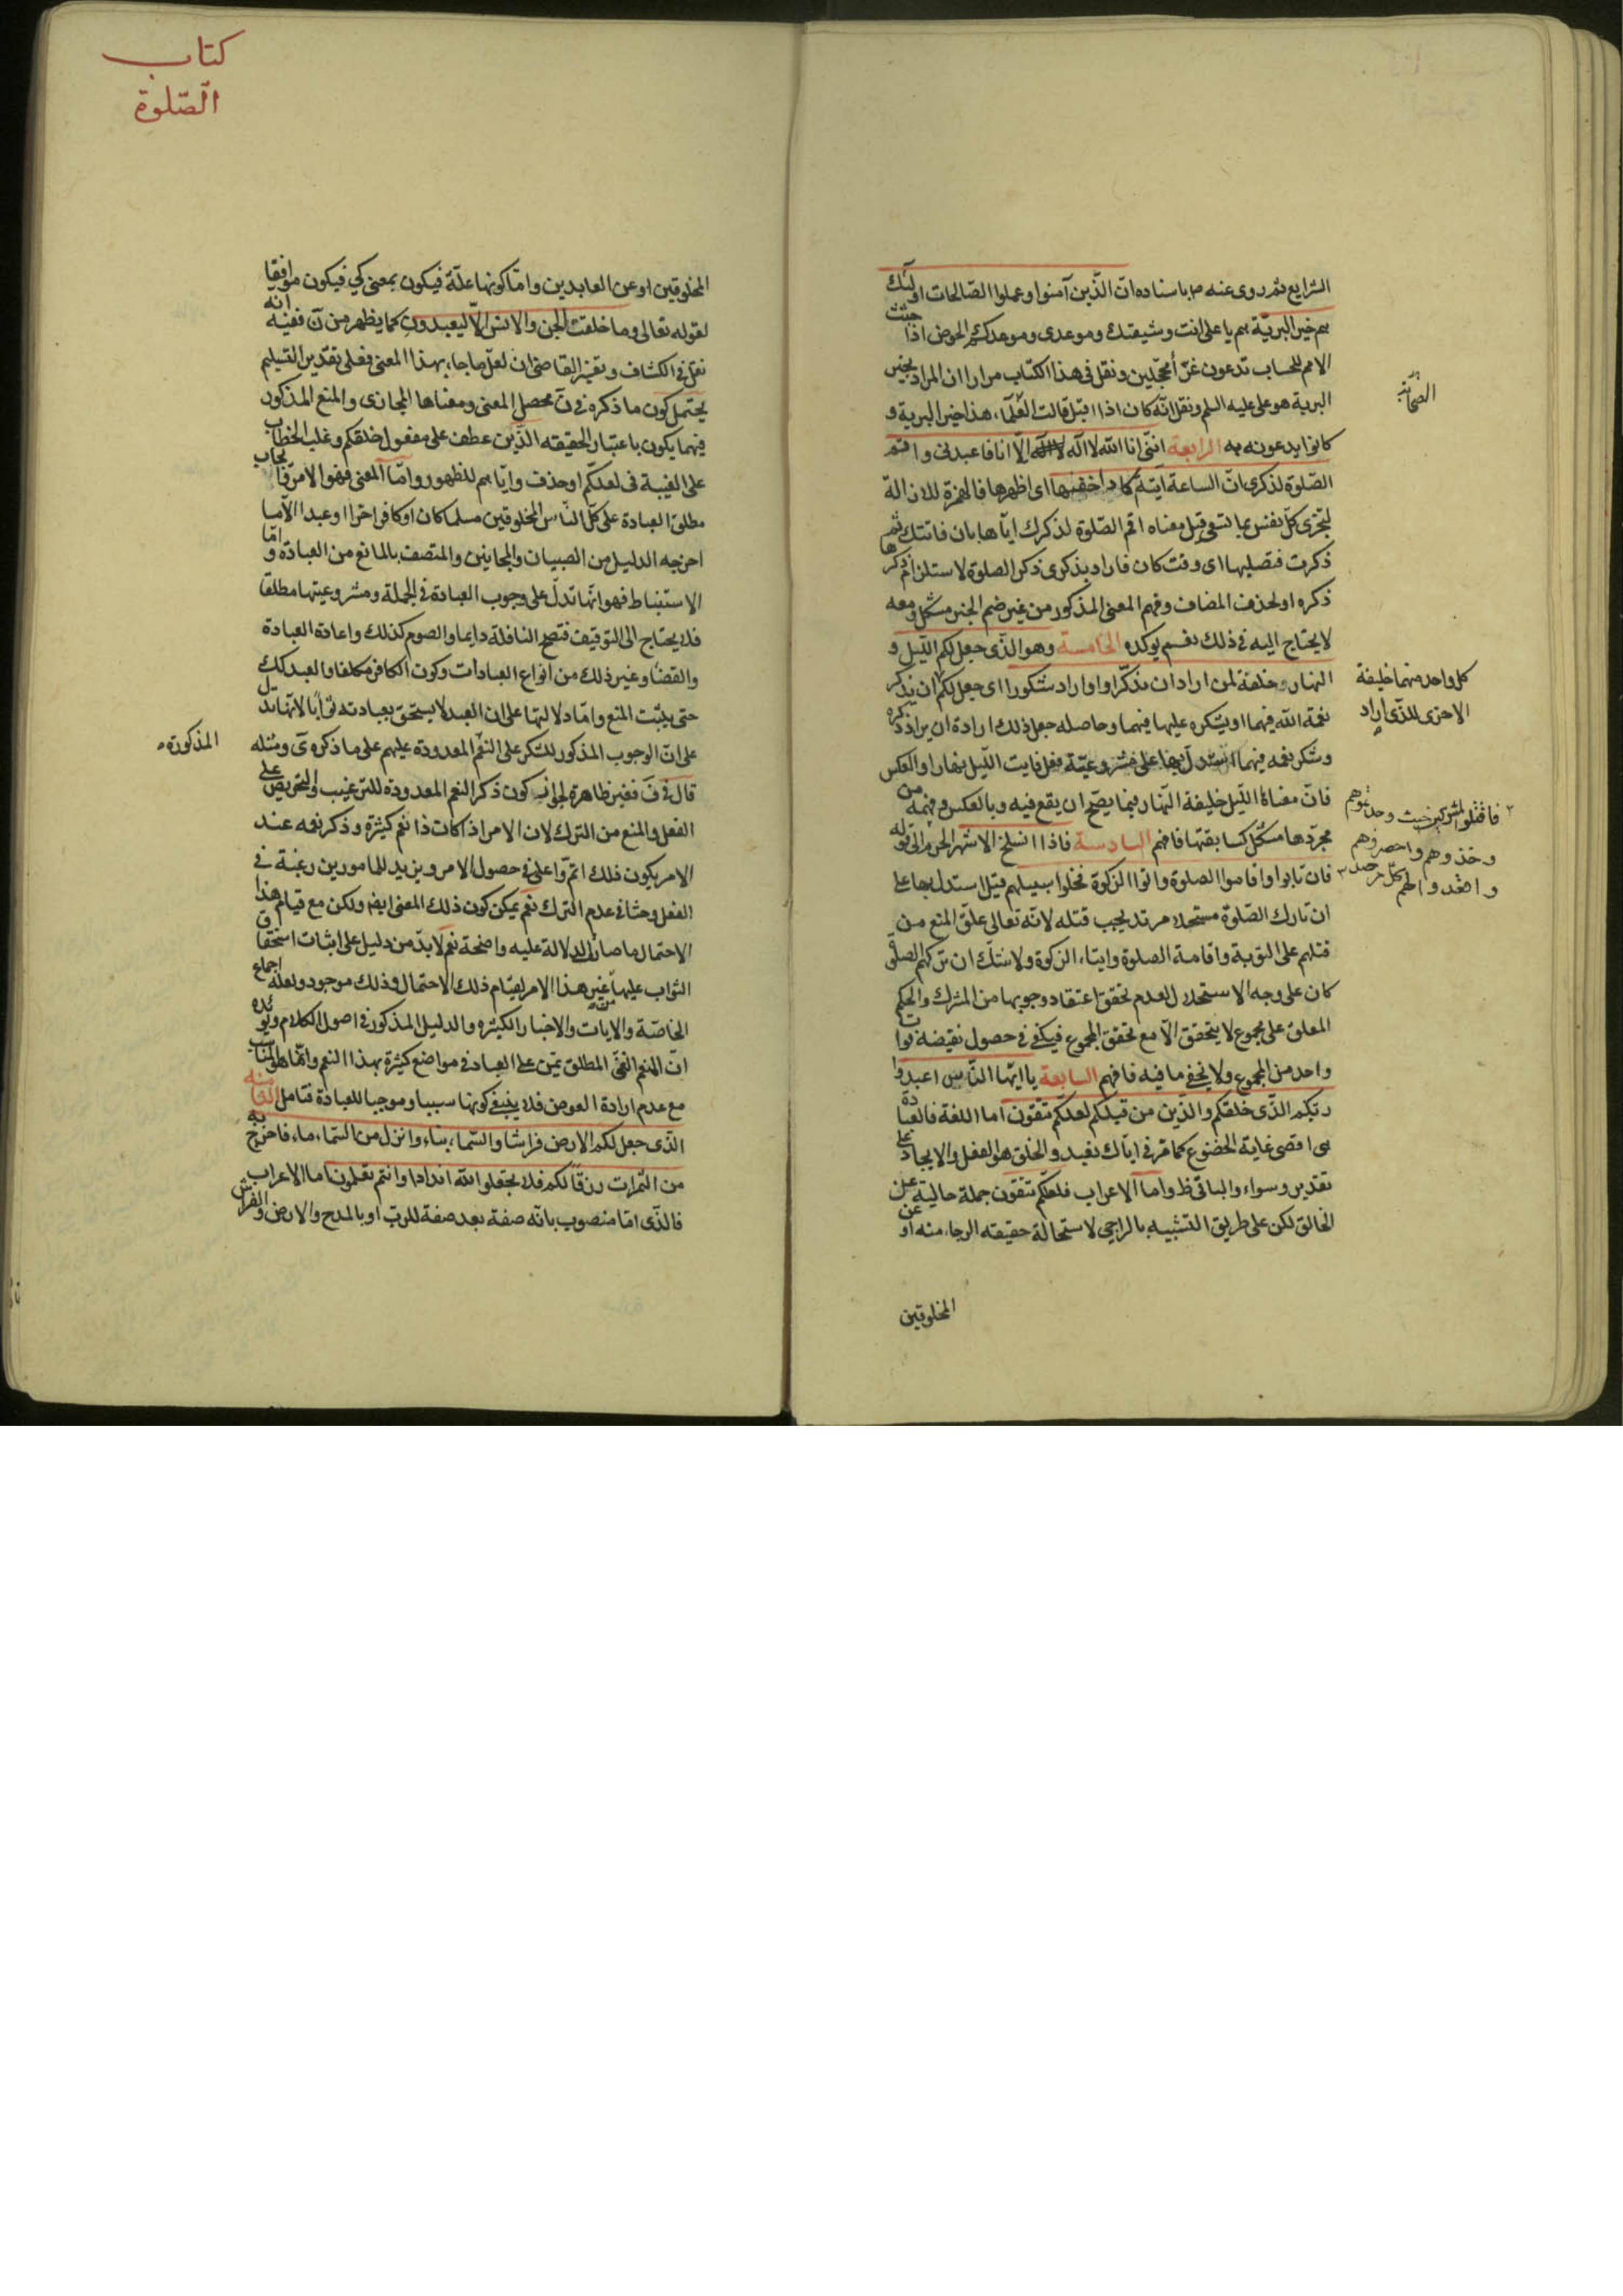 الشرايع ثم روى عنه م باسناده انّ الّذين آمنوا وعملوا الصّالحات اولئك
هم خير البريّة هم يا على انت وشيعتك وموعدى وموعدكم الحوض اذا جئت
الامم للحساب تدعون غرّاً محجّلين ونقل فى هذا الكتاب مرارا ان المراد بخير
الصحابة
البرية هو على عليه السلم ونقل انّه كان اذا اقبل قالت العلماء هذا خير البرية و
كانوا يدعونه به الرابعة انّنى انا اللّه لا اله الّا انا فاعبدنى واقم
الصّلوة لذكرى انّ الساعة آتية اكاد اخفيها اى اظهرها فالهمزة للازالة
لتجزى كلّ نفس بما تسعى وقيل معناه اقم الصّلوة لذكرك ايّاها بان فاتتك ثم
ذكرت فتصليها اى وقت كان فاراد بذكرى ذكر الصلوة لاستلزام ذكرها
ذكره او لحذف المضاف وفهم المعنى المذكور من غير ضم الخبر مشكل ومعه
لا يحتاج اليه فى ذلك نعم يوكده الخامسة وهو الّذى جعل لكم اللّيل و
النهار خلفة لمن اراد ان يذكّر او اراد شكورا اى جعل لكم ان يذكر
كل واحد منهما خليفة
الاخرى للذى اراد
نعمة اللّه فيهما او يشكره عليها فيهما وحاصله جعل ذلك ارادة ان يراد ذكره
وشكر نعمه فيهما استدلّ بها على مشروعيّة فعل فايت اللّيل نهارا والعكس
فانّ معناه اللّيل خليفة النّهار فيما يصّح ان يقع فيه وبالعكس وفهمه من
فاقتلوا المشركين حيث وجدتموهم
وخذوهم واحصروهم
واقعدوا لهم كلّ مرصد
مجرّدها مشكل كسابقتها فافهم السادسة فاذا انسلخ الاشهر الحرم الى قوله
فان تابوا واقاموا الصلوة واتوا الزكوة فخلوا سبيلهم قيل استدل بها على
ان تارك الصّلوة مستحلا مرتد يجب قتله لانّه تعالى علّق المنع من
قتلهم على التوبة واقامة الصلوة وايتاء الزكوة ولا شكّ ان تركهم الصلوة
كان على وجه الاستحلال لعدم تحقق اعتقاد وجوبها من المشرك والحكم
المعلق على مجموع لا يتحقق الّا مع تحقق المجموع فيكفى فى حصول نقيضه فوات
واحد من المجموع ولا يخفى ما فيه فافهم السابعة يا ايّها النّاس اعبدوا
ربّكم الّذى خلقكم والّذين من قبلكم لعلّكم تتقون اما اللغة فالعبادة
هى اقصى غاية الخضوع كما مرّ فى ايّاك نعبد والخلق هو الفعل والايجاد على
تقدير وسواء والباقى ظ واما الاعراب فلعلّكم تتقون جملة حالية عن
الخالق لكن على طريق التشبيه بالراجى لاستحالة حقيقته الرجاء منه او عن
المخلوقين
كتاب
الصّلوة
المخلوقين او عن العابدين وامّا كونها علّة فيكون بمعنى كى فيكون موافقا
لقوله تعالى وما خلقت الجن والانس الّا ليعبدون كما يظهر من ن ففيه انه
نقل فى الكشاف وتفسير القاضى ان لعلّ ما جاء بهذا المعنى فعلى تقدير التسليم
يحتمل كون ما ذكره فى ن محصل المعنى ومعناها المجازى والمنع المذكور
فيهما يكون باعتبار الحقيقه الّذين عطف على مفعول خلقكم وغلب الخطاب
على الغيبة فى لعلّكم او حذف وايّاهم للظهور وامّا المعنى فهو الامر بايجاب
مطلق العبادة على كلّ النّاس المخلوقين مسلما كان او كافرا حرا او عبدا الّا ما
اخرجه الدليل من الصبيان والمجانين والمتصف بالمانع من العبادة وامّا
الاستنباط فهو انّها تدلّ على وجوب العبادة فى الجملة ومشروعيتها مطلقا
فلا يحتاج الى التوقيف فتصح النافلة دايما والصوم كذلك واعادة العبادة
والقضاء وغير ذلك من انواع العبادات وكون الكافر مكلفا والعبد كك
حتى يثبت المنع وامّا دلالتها على ان العبد لا يستحق بعبادته ثوابا لانّها تدل
على انّ الوجوب المذكور للشكر على النعم المعدودة عليهم على ما ذكره ى ومثله
المذكورة
قال فى ف فغير ظاهرة لجواز كون ذكر النعم المعدودة للترغيب والتحريص على
الفعل والمنع من الترك لان الامر اذا كانت ذا نعم كثيرة وذكر نعمه عند
الامر يكون ذلك اتمّ واعلى فى حصول الامر ويزيد للمامورين رغبة فى
الفعل وحثا فى عدم الترك نعم يمكن كون ذلك المعنى ايضا ولكن مع قيام هذا
الاحتمال ما صار الدلالة عليه واضحة نعم لا بدّ من دليل على اثبات استحقاق
الثواب عليها غير هذا الامر لقيام ذلك الاحتمال وذلك موجود ولعله اجماع
الخاصّة والايات والاخبار الكثيره والدليل المذكور فى اصول الكلام ويؤيده
انّ المنعم الغنى المطلق يمّن على العباد فى مواضع كثيرة بهذا النعم وانّما هو المناسب
مع عدم ارادة العوض فلا ينبغى كونها سببا وموجبا للعبادة فتامل الثامنه
الّذى جعل لكم الارض فراشا والسّماء بناء وانزل من السّماء ماء فاخرج به
من الثمرات رزقا لكم فلا تجعلوا للّه اندادا وانتم تعلمون اما الاعراب
فالّذى امّا منصوب بانّه صفة بعد صفة للربّ او بالمدح والارض والفراش